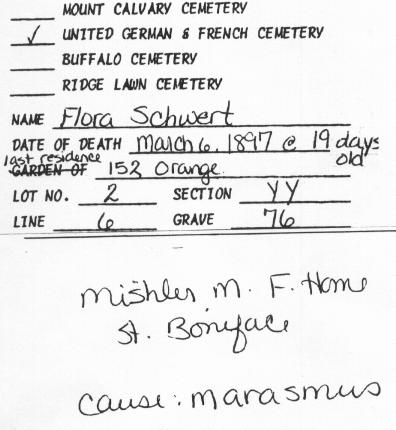 MOUNT CALVARY CEMETERY
✓ UNITED GERMAN & FRENCH CEMETERY
BUFFALO CEMETERY
RIDGE LAWN CEMETERY
NAME Flora Schwert
DATE OF DEATH March 6, 1897 @ 19 days old
last residence
GARDEN OF 152 Orange
LOT NO. 2 SECTION YY
LINE 6 GRAVE 76
Mishler M. F. Home
St. Boniface
cause: marasmus